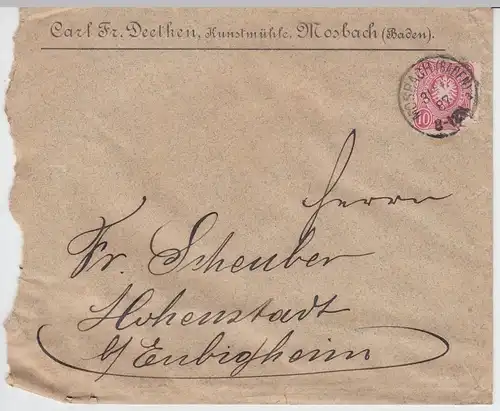 Carl Fr. Deethen, Kunstmühle, Mosbach (Baden).
MOSBACH (BADEN)
10
Herrn
Fr. Scheuber
Hohenstadt
b/Eubigheim